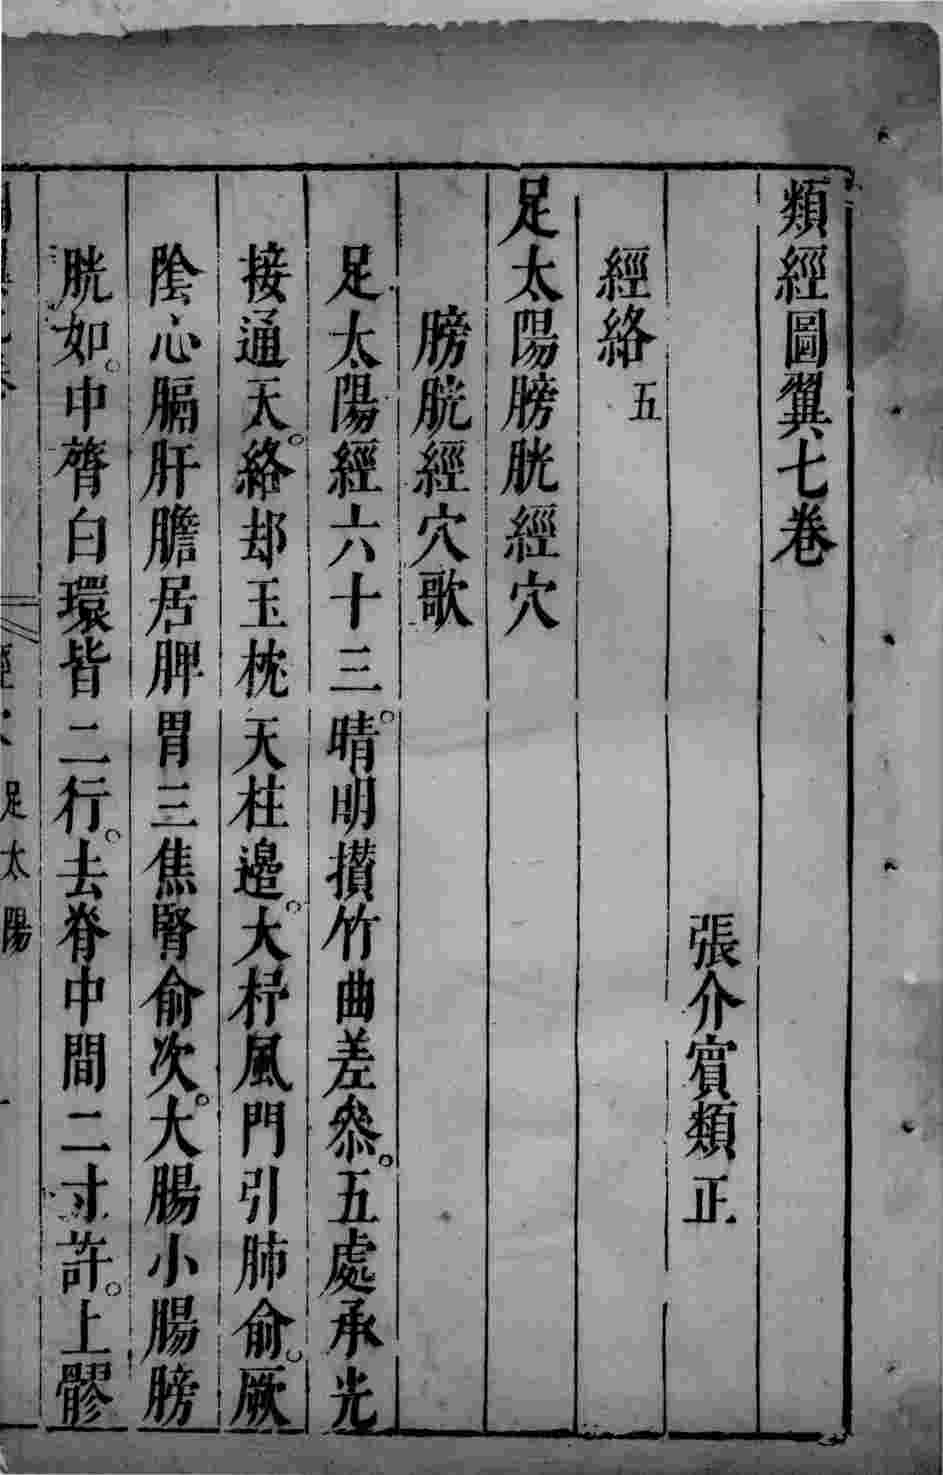 類經圖翼七卷
張介賓類正
經絡五
足太陽膀胱經穴
膀胱經穴歌
足太陽經六十三。晴明攅竹曲差叅。五處承光
接通天。絡却玉枕天柱邊。大杼風門引肺俞。厥
陰心膈肝膽居脾胃三焦腎俞次。大腸小腸膀
胱如。中膂白環皆二行。去脊中間二寸許。上髎
足太陽